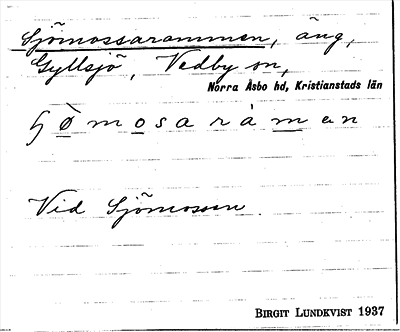 Sjömossarammen, äng,
Gyllsjö, Vedby sn,
Norra Åsbo hd, Kristianstads län
ʃø̀mosaràman
Vid Sjömossen.
BIRGIT LUNDKVIST 1937